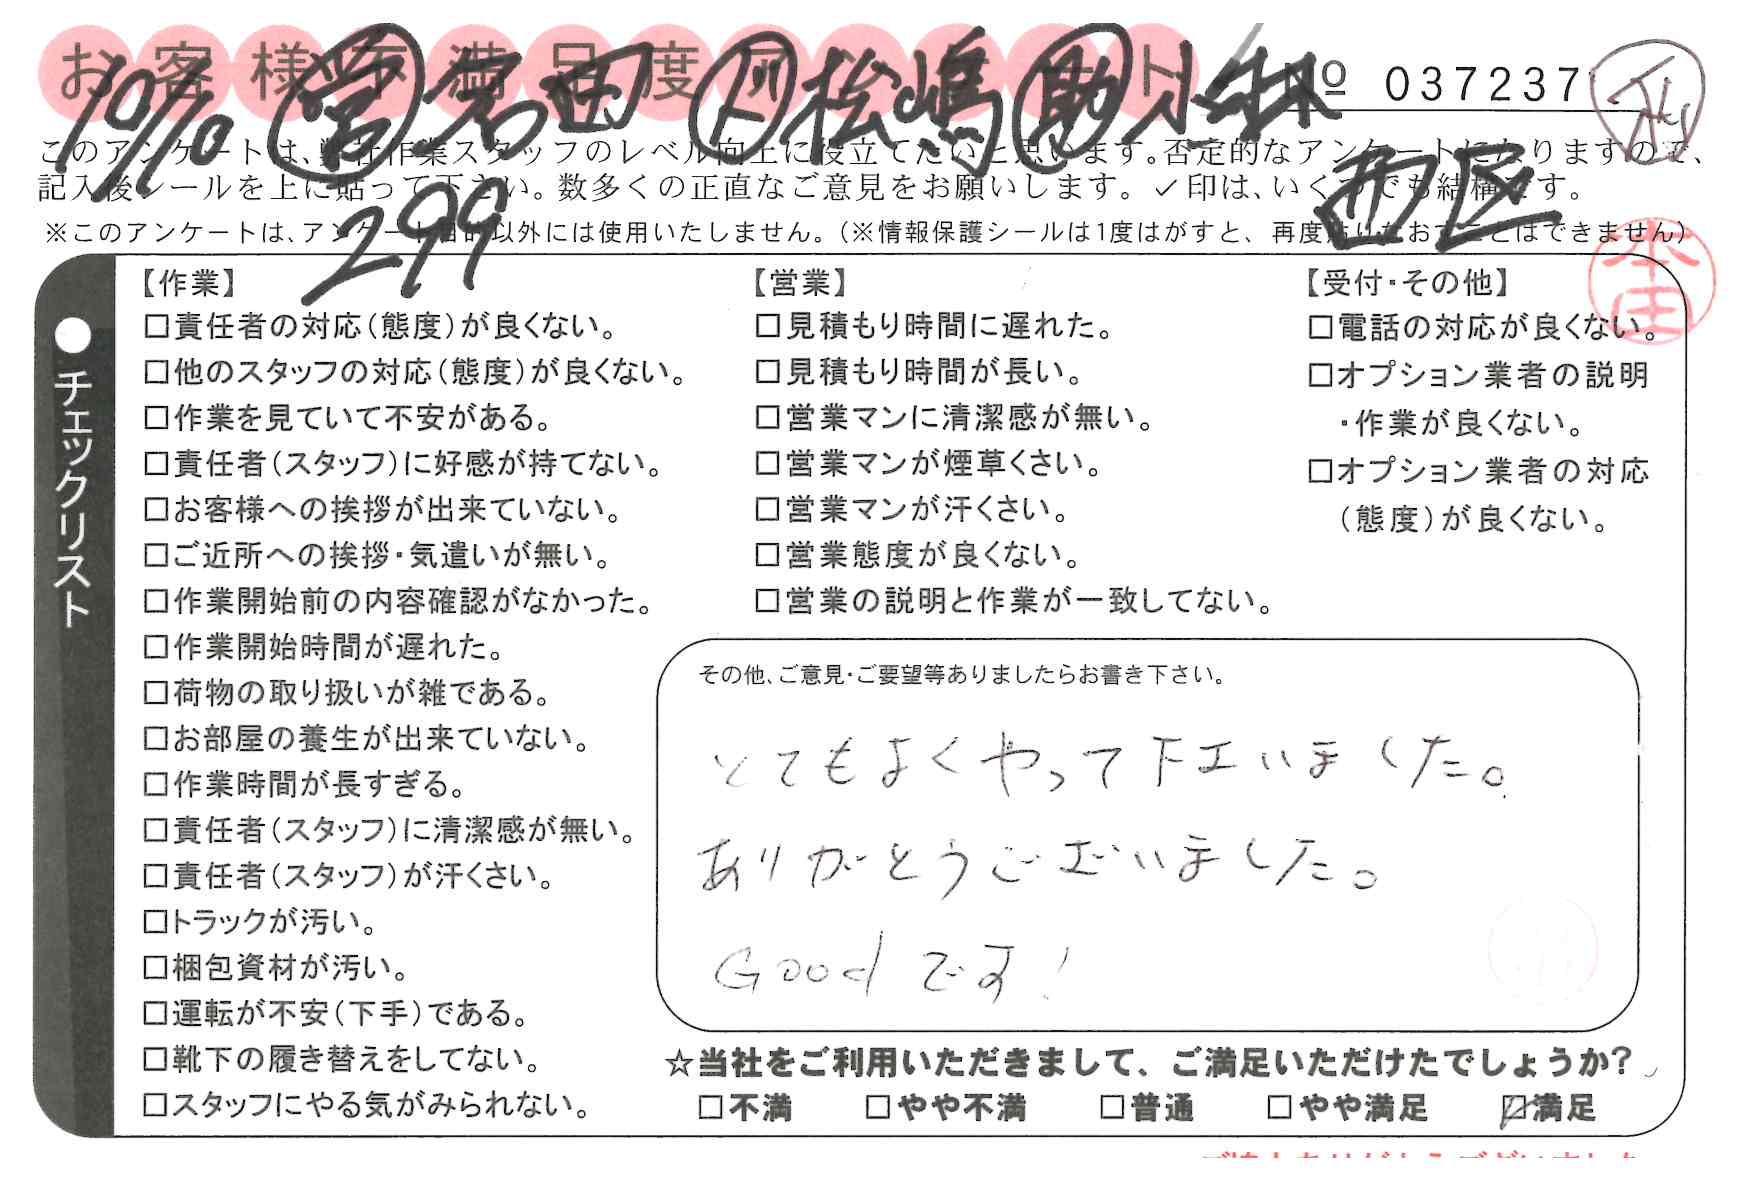 お客様不満足度アンケート
10/10 営 岩田 ド 松嶋 助 小林 № 037237
このアンケートは、弊社作業スタッフのレベル向上に役立てたいと思います。否定的なアンケートになりますので、
記入後シールを上に貼って下さい。数多くの正直なご意見をお願いします。✓印は、いくつでも結構です。
299 西区
※このアンケートは、アンケート目的以外には使用いたしません。(※情報保護シールは1度はがすと、再度貼りなおすことはできません)
本田
●チェックリスト
【作業】
□責任者の対応(態度)が良くない。
□他のスタッフの対応(態度)が良くない。
□作業を見ていて不安がある。
□責任者(スタッフ)に好感が持てない。
□お客様への挨拶が出来ていない。
□ご近所への挨拶・気遣いが無い。
□作業開始前の内容確認がなかった。
□作業開始時間が遅れた。
□荷物の取り扱いが雑である。
□お部屋の養生が出来ていない。
□作業時間が長すぎる。
□責任者(スタッフ)に清潔感が無い。
□責任者(スタッフ)が汗くさい。
□トラックが汚い。
□梱包資材が汚い。
□運転が不安(下手)である。
□靴下の履き替えをしてない。
□スタッフにやる気がみられない。
【営業】
□見積もり時間に遅れた。
□見積もり時間が長い。
□営業マンに清潔感が無い。
□営業マンが煙草くさい。
□営業マンが汗くさい。
□営業態度が良くない。
□営業の説明と作業が一致してない。
【受付・その他】
□電話の対応が良くない。
□オプション業者の説明
・作業が良くない。
□オプション業者の対応
(態度)が良くない。
その他、ご意見・ご要望等ありましたらお書き下さい。
とてもよくやって下さいました。
ありがとうございました。
Goodです!
☆当社をご利用いただきまして、ご満足いただけたでしょうか?
□不満 □やや不満 □普通 □やや満足 ☑満足